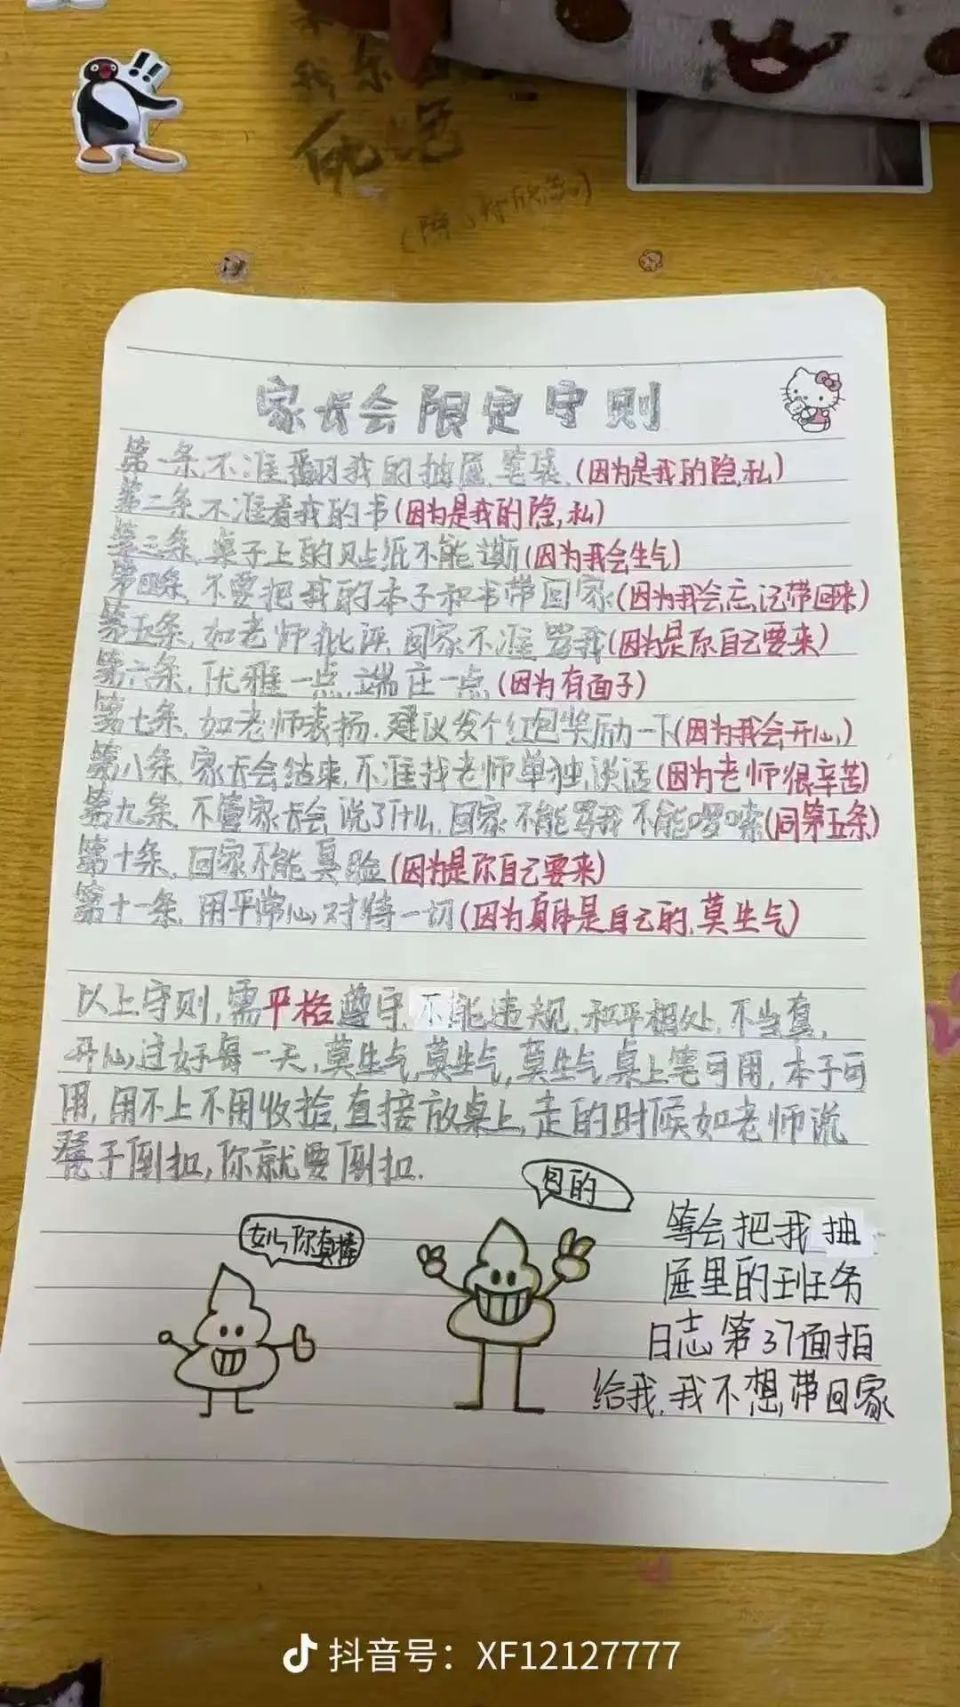 家长会限定守则
第一条,不准翻我的抽屉,笔袋,(因为是我的隐,私)
第二条,不准看我的书(因为是我的隐,私)
第三条,桌子上的贴纸不能撕(因为我会生气)
第四条,不要把我的本子和书带回家(因为我会忘记带回来)
第五条,如老师批评,回家不准骂我(因为是你自己要来)
第六条,优雅一点,端庄一点(因为有面子)
第七条,如老师表扬,建议发个红包奖励一下(因为我会开心)
第八条,家长会结束,不准找老师单独谈话(因为老师很辛苦)
第九条,不管家长会说了什么,回家不能骂我不能啰嗦(同第五条)
第十条,回家不能臭脸(因为是你自己要来)
第十一条,用平常心对待一切(因为身体是自己的,莫生气)
以上守则,需严格遵守,不能违规,和平相处,不当真,
开心过好每一天,莫生气,莫生气,莫生气,桌上笔可用,本子可
用,用不上不用收拾,直接放桌上,走的时候如老师说
凳子倒扣,你就要倒扣.
女儿你真棒
目的
等会把我抽
屉里的班务
日志第37面拍
给我,我不想,带回家
抖音号：XF12127777